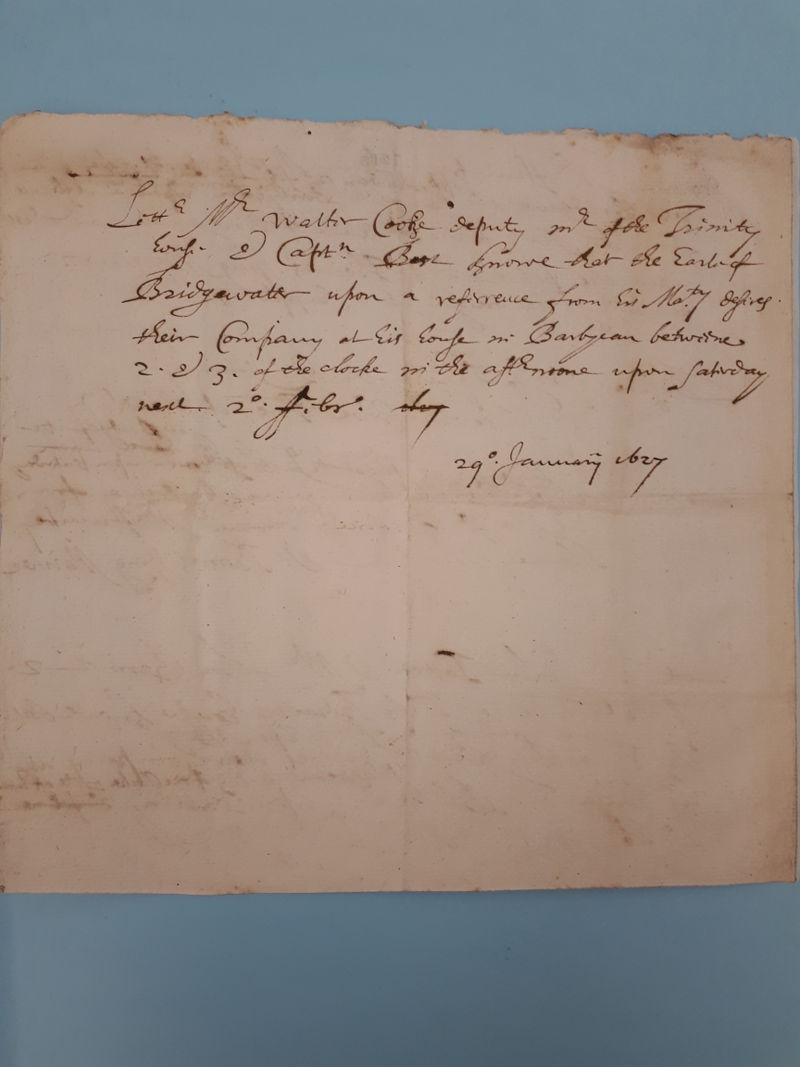 Lettr Mr Walter Cooke deputy mr of the Trinity
house & Captn Best knowe that the Earle of
Bridgewater upon a reference from his Maty desires
their Company at his house in Barbycan betweene
2. & 3. of the clocke in the afternoone upon Saturday
next 2o. Febr.
29o. January 1627